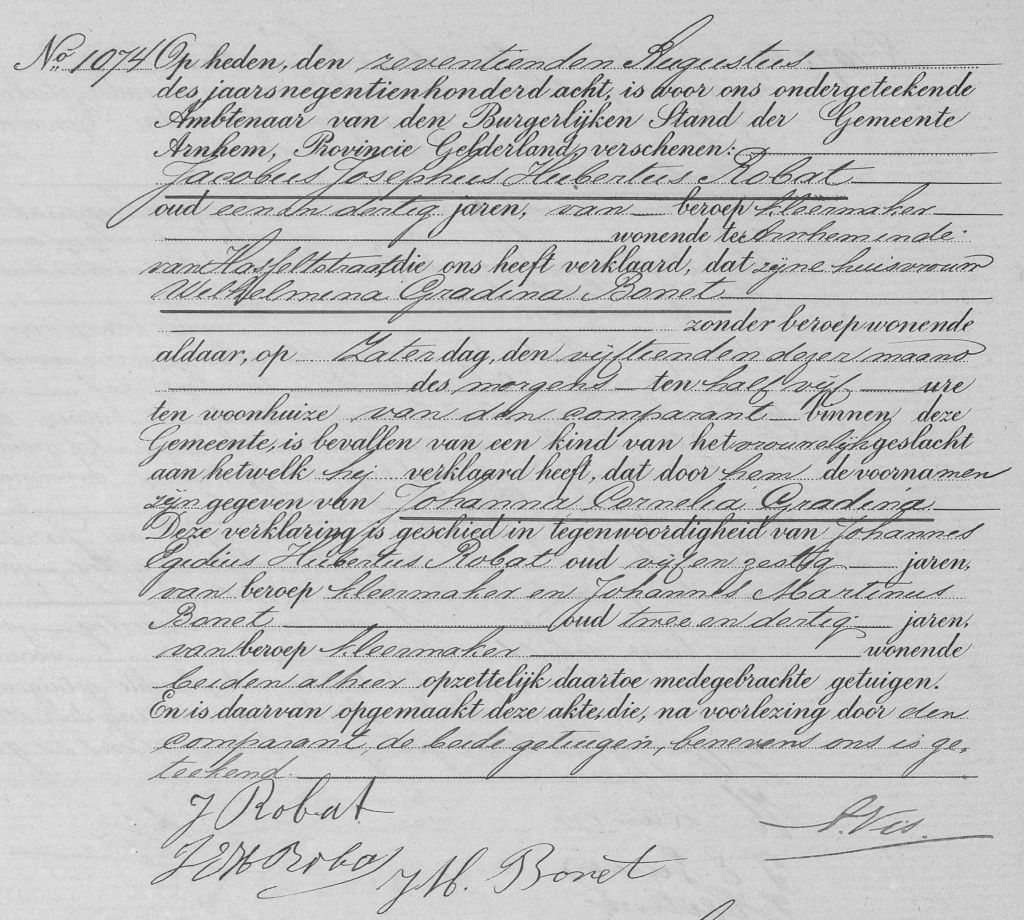 No 1074 Op heden, den zeventienden Augustus
des jaars negentienhonderd acht, is voor ons ondergeteekende
Ambtenaar van den Burgerlijken Stand der Gemeente
Arnhem, Provincie Gelderland, verschenen:
Jacobus Josephus Hubertus Robat
oud een en dertig jaren, van beroep kleermaker
wonende te Arnhem in de
van Hasseltstraat die ons heeft verklaard, dat zijne huisvrouw
Wilhelmina Gradina Bonet
zonder beroep wonende
aldaar, op Zaterdag, den vijftienden dezer maand
des morgens ten half vijf ure
ten woonhuize van den comparant binnen deze
Gemeente, is bevallen van een kind van het vrouwelijk geslacht
aan hetwelk hij verklaard heeft, dat door hem de voornamen
zijn gegeven van Johanna Cornelia Gradina
Deze verklaring is geschied in tegenwoordigheid van Johannes
Egidius Hubertus Robat oud vijf en zestig jaren,
van beroep kleermaker en Johannes Martinus
Bonet oud twee en dertig jaren,
van beroep kleermaker wonende
beiden alhier opzettelijk daartoe medegebrachte getuigen.
En is daarvan opgemaakt deze akte, die, na voorlezing door den
comparant, de beide getuigen, benevens ons is ge-
teekend.
J Robat
J E H Robat
J M. Bonet
A. Vis.